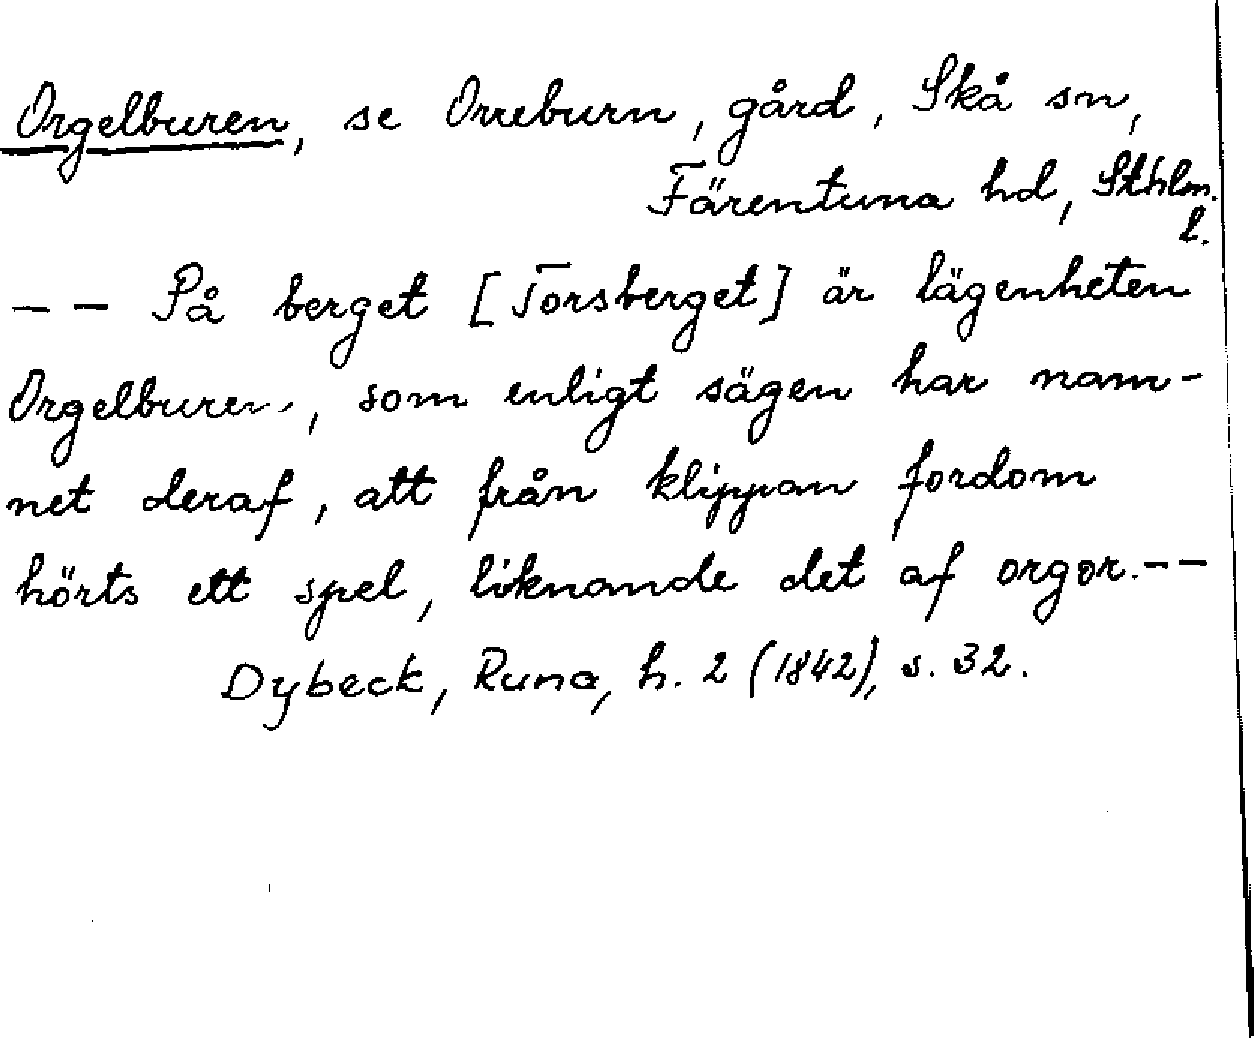 Orgelburen, se Orreburn, gård, Skå sn,
Färentuna hd, Sthlm.
l.
-- På berget [Torsberget] är lägenheten
Orgelburen, som enligt sägen har nam-
net deraf, att från klippan fordom
hörts ett spel, liknande det af orgor.--
Dybeck, Runa, h. 2 (1842), s. 32.